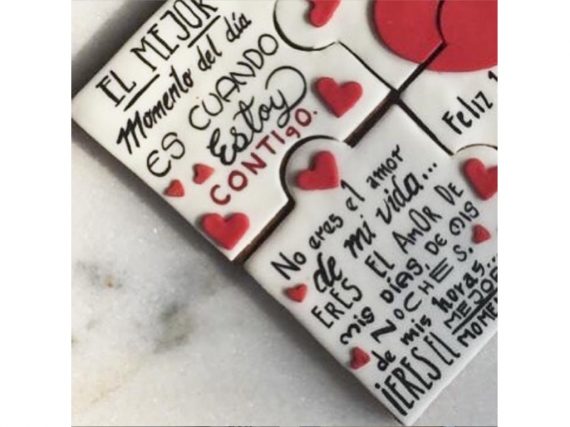 EL MEJOR
Momento del día
ES CUANDO
Estoy
CONTIGO.
Feliz
No eres el amor
de mi vida...
ERES EL AMOR DE
mis DÍAS DE MIS
NOCHES.
de mis horas...
¡ERES EL MEJOR
MOMEN